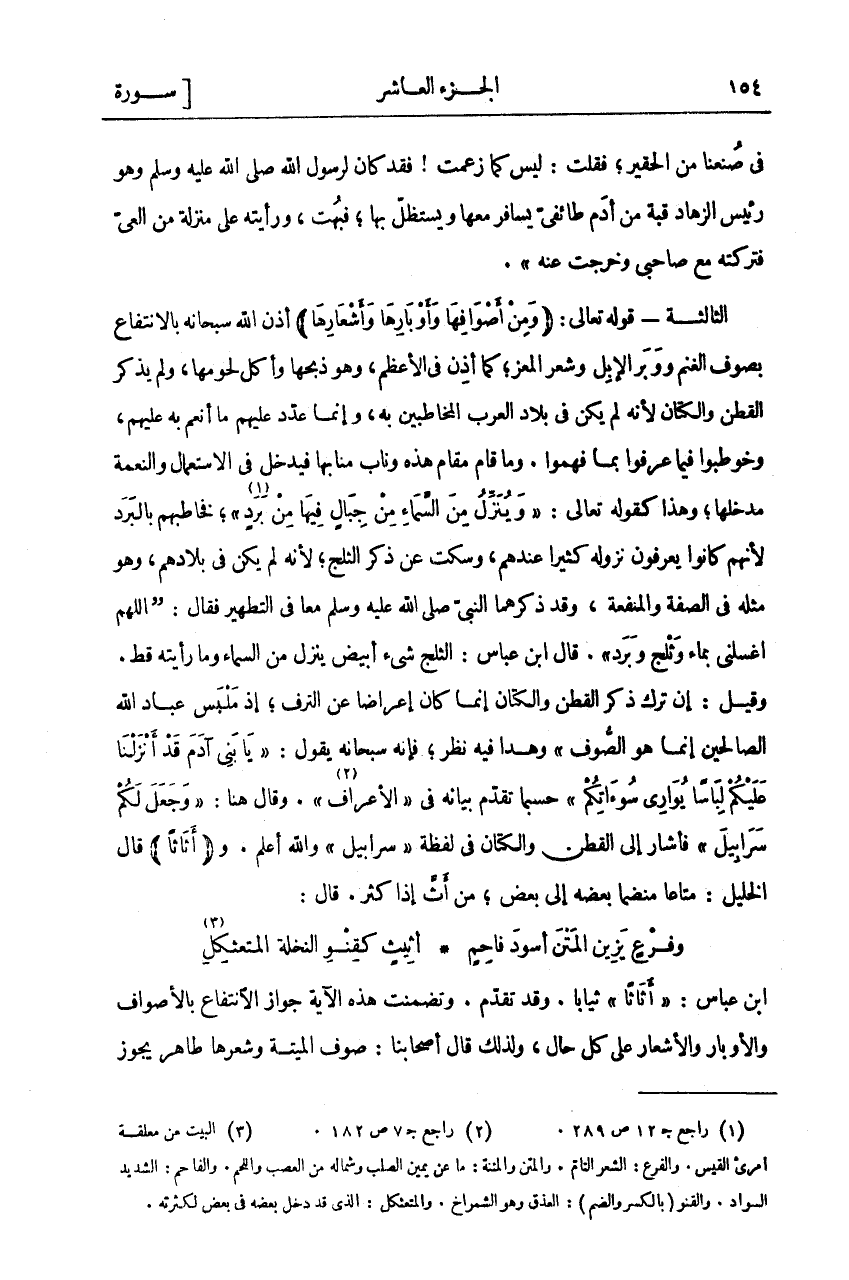 ١٥٤ الجـــزء العـاشر [ ســـورة
فى صُنعنا من الحقير؛ فقلت : ليس كما زعمت ! فقد كان لرسول الله صلى الله عليه وسلم وهو
رئيس الزهاد قبة من أدَم طائفىّ يسافر معها ويستظلّ بها ؛ فبُهت ، ورأيته على منزلة من العىّ
فتركته مع صاحبى وخرجت عنه » .
الثالثـــة — قوله تعالى: ﴿ وَمِنْ أَصْوَافِهَا وَأَوْبَارِهَا وَأَشْعَارِهَا ﴾ أذن الله سبحانه بالانتفاع
بصوف الغنم ووَبَر الإبل وشعر المعز؛ كما أذِن فى الأعظم، وهو ذبحها وأكل لحومها، ولم يذكر
القطن والكتان لأنه لم يكن فى بلاد العرب المخاطبين به، وإنمـا عدّد عليهم ما أنعم به عليهم،
وخوطبوا فيما عرفوا بمـا فهموا . وما قام مقام هذه وناب منابها فيدخل فى الاستعمال والنعمة
مدخلها؛ وهذا كـقوله تعالى : « وَيُنَزِّلُ مِنَ السَّمَاءِ مِنْ جِبَالٍ فِيهَا مِنْ بَرَدٍ (١) »؛ فخاطبهم بالبَرَد
لأنهم كانوا يعرفون نزوله كثيرا عندهم، وسكت عن ذكر الثلج؛ لأنه لم يكن فى بلادهم، وهو
مثله فى الصفة والمنفعة ، وقد ذكرهما النبىّ صلى الله عليه وسلم معا فى التطهير فقال : ”اللهم
اغسلنى بماء وَثلج وَبَرَد» . قال ابن عباس : الثلج شىء أبيض ينزل من السماء وما رأيته قط .
وقيـل : إن ترك ذكر القطن والكتان إنمـا كان إعراضا عن الترف ؛ إذ مَلْبَس عبـاد الله
الصالحين إنمـا هو الصُّوف » وهـدا فيه نظر ؛ فإنه سبحانه يقول : « يَا بَنِى آدَمَ قَدْ أَنْزَلْنَا
عَلَيْكُمْ لِبَاسًا يُوَارِى سُوءَاتِكُمْ (٢) » حسبما تقدّم بيانه فى « الأعراف » . وقال هنا : « وَجَعَلَ لَكُمْ
سَرَابِيلَ » فأشار إلى القطن والكتان فى لفظة « سرابيل » والله أعلم . و ﴿ أَثَاثًا ﴾ قال
الخليل : متاعا منضما بعضه إلى بعض ؛ من أَثَّ إذا كثر . قال :
وفـرْعٍ يَزِين المَتْنَ أسودَ فاحِمٍ * أثِيثٍ كـقِنْـوِ النخلة المتعثكِلِ (٣)
ابن عباس : « أَثَاثًا » ثيابا . وقد تقدّم . وتضمنت هذه الآية جواز الانتفاع بالأصواف
والأوبار والأشعار على كل حال ، ولذلك قال أصحابنا : صوف الميتـة وشعرها طاهـر يجوز
(١) راجع جـ ١٢ ص ٢٨٩ . (٢) راجع جـ ٧ ص ١٨٢ . (٣) البيت من معلقـة
أمرئ القيس . والفرع : الشعر التام . والمتن والمتنة : ما عن يمين الصلب وشماله من العصب واللحم . والفاحم : الشديد
السواد . والقنو (بالكسر والضم) : العذق وهو الشمراخ . والمتعثكل : الذى قد دخل بعضه فى بعض لكثرته .